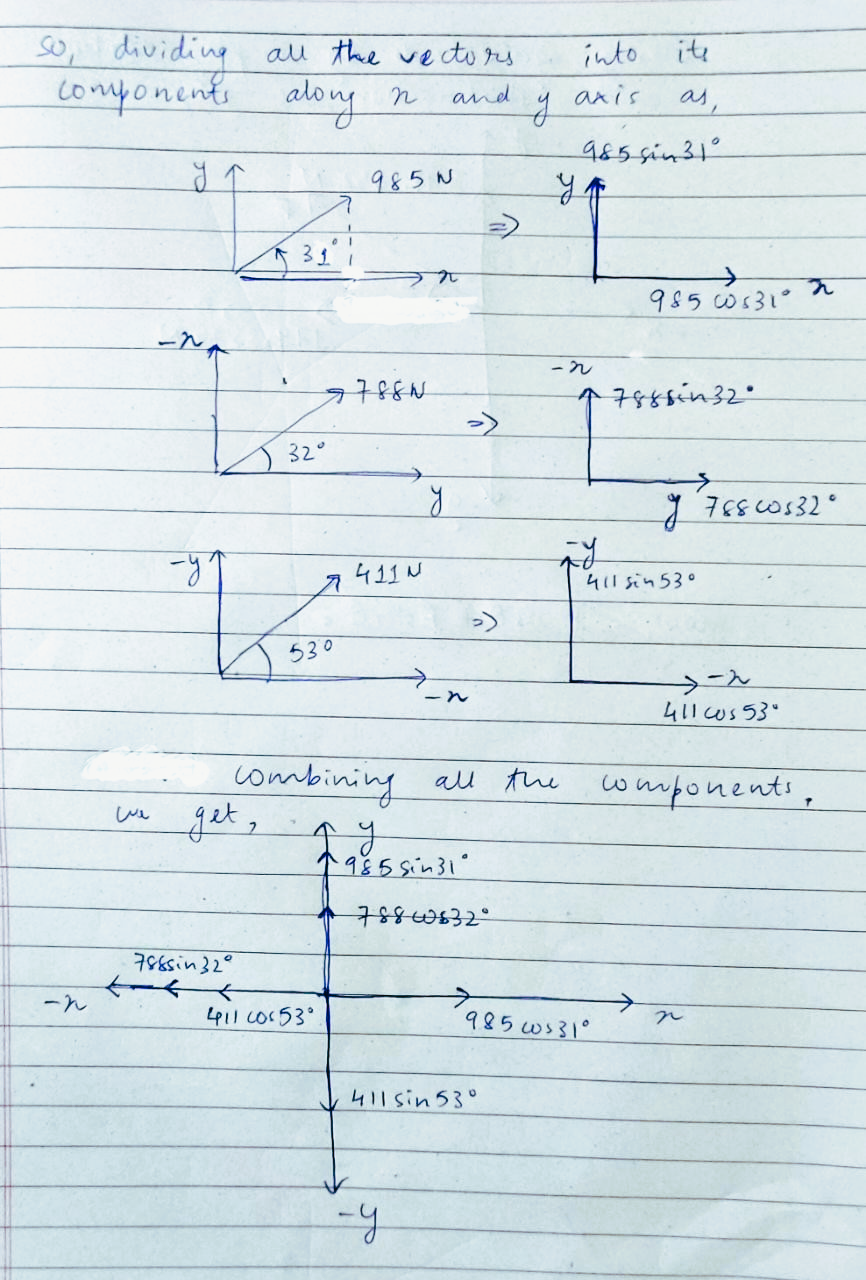 so, dividing all the vectors into its
components along x and y axis as,
985 sin31°
y 985 N y
31° ⇒
x 985 cos31° x
-x -x
788N ⇒ 788sin32°
32°
y y 788cos32°
-y -y
411N 411 sin53°
53° ⇒
-x -x
411 cos53°
combining all the components,
we get, y
985 sin31°
788 cos32°
788sin32°
-x 411 cos53° 985 cos31° x
411 sin53°
-y